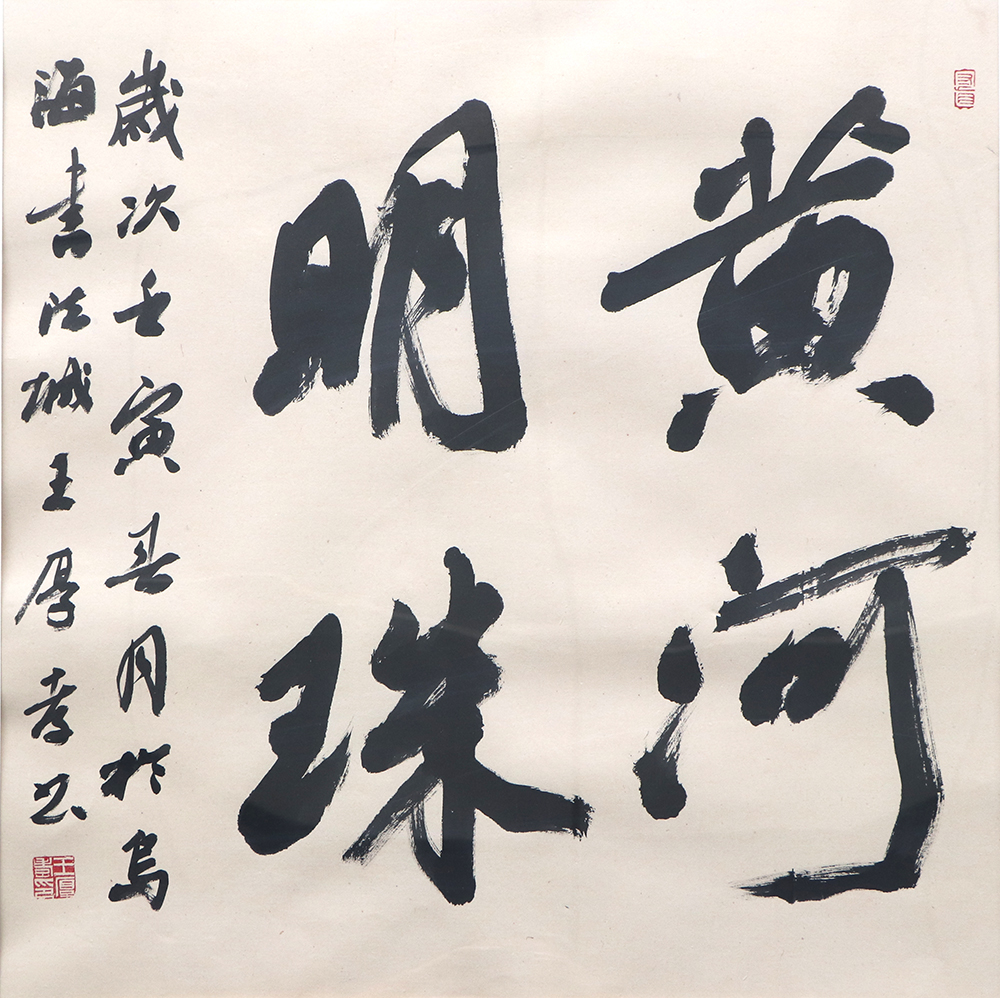 黄河
明珠
歲次壬寅春月於烏
海書法城王厚孝书